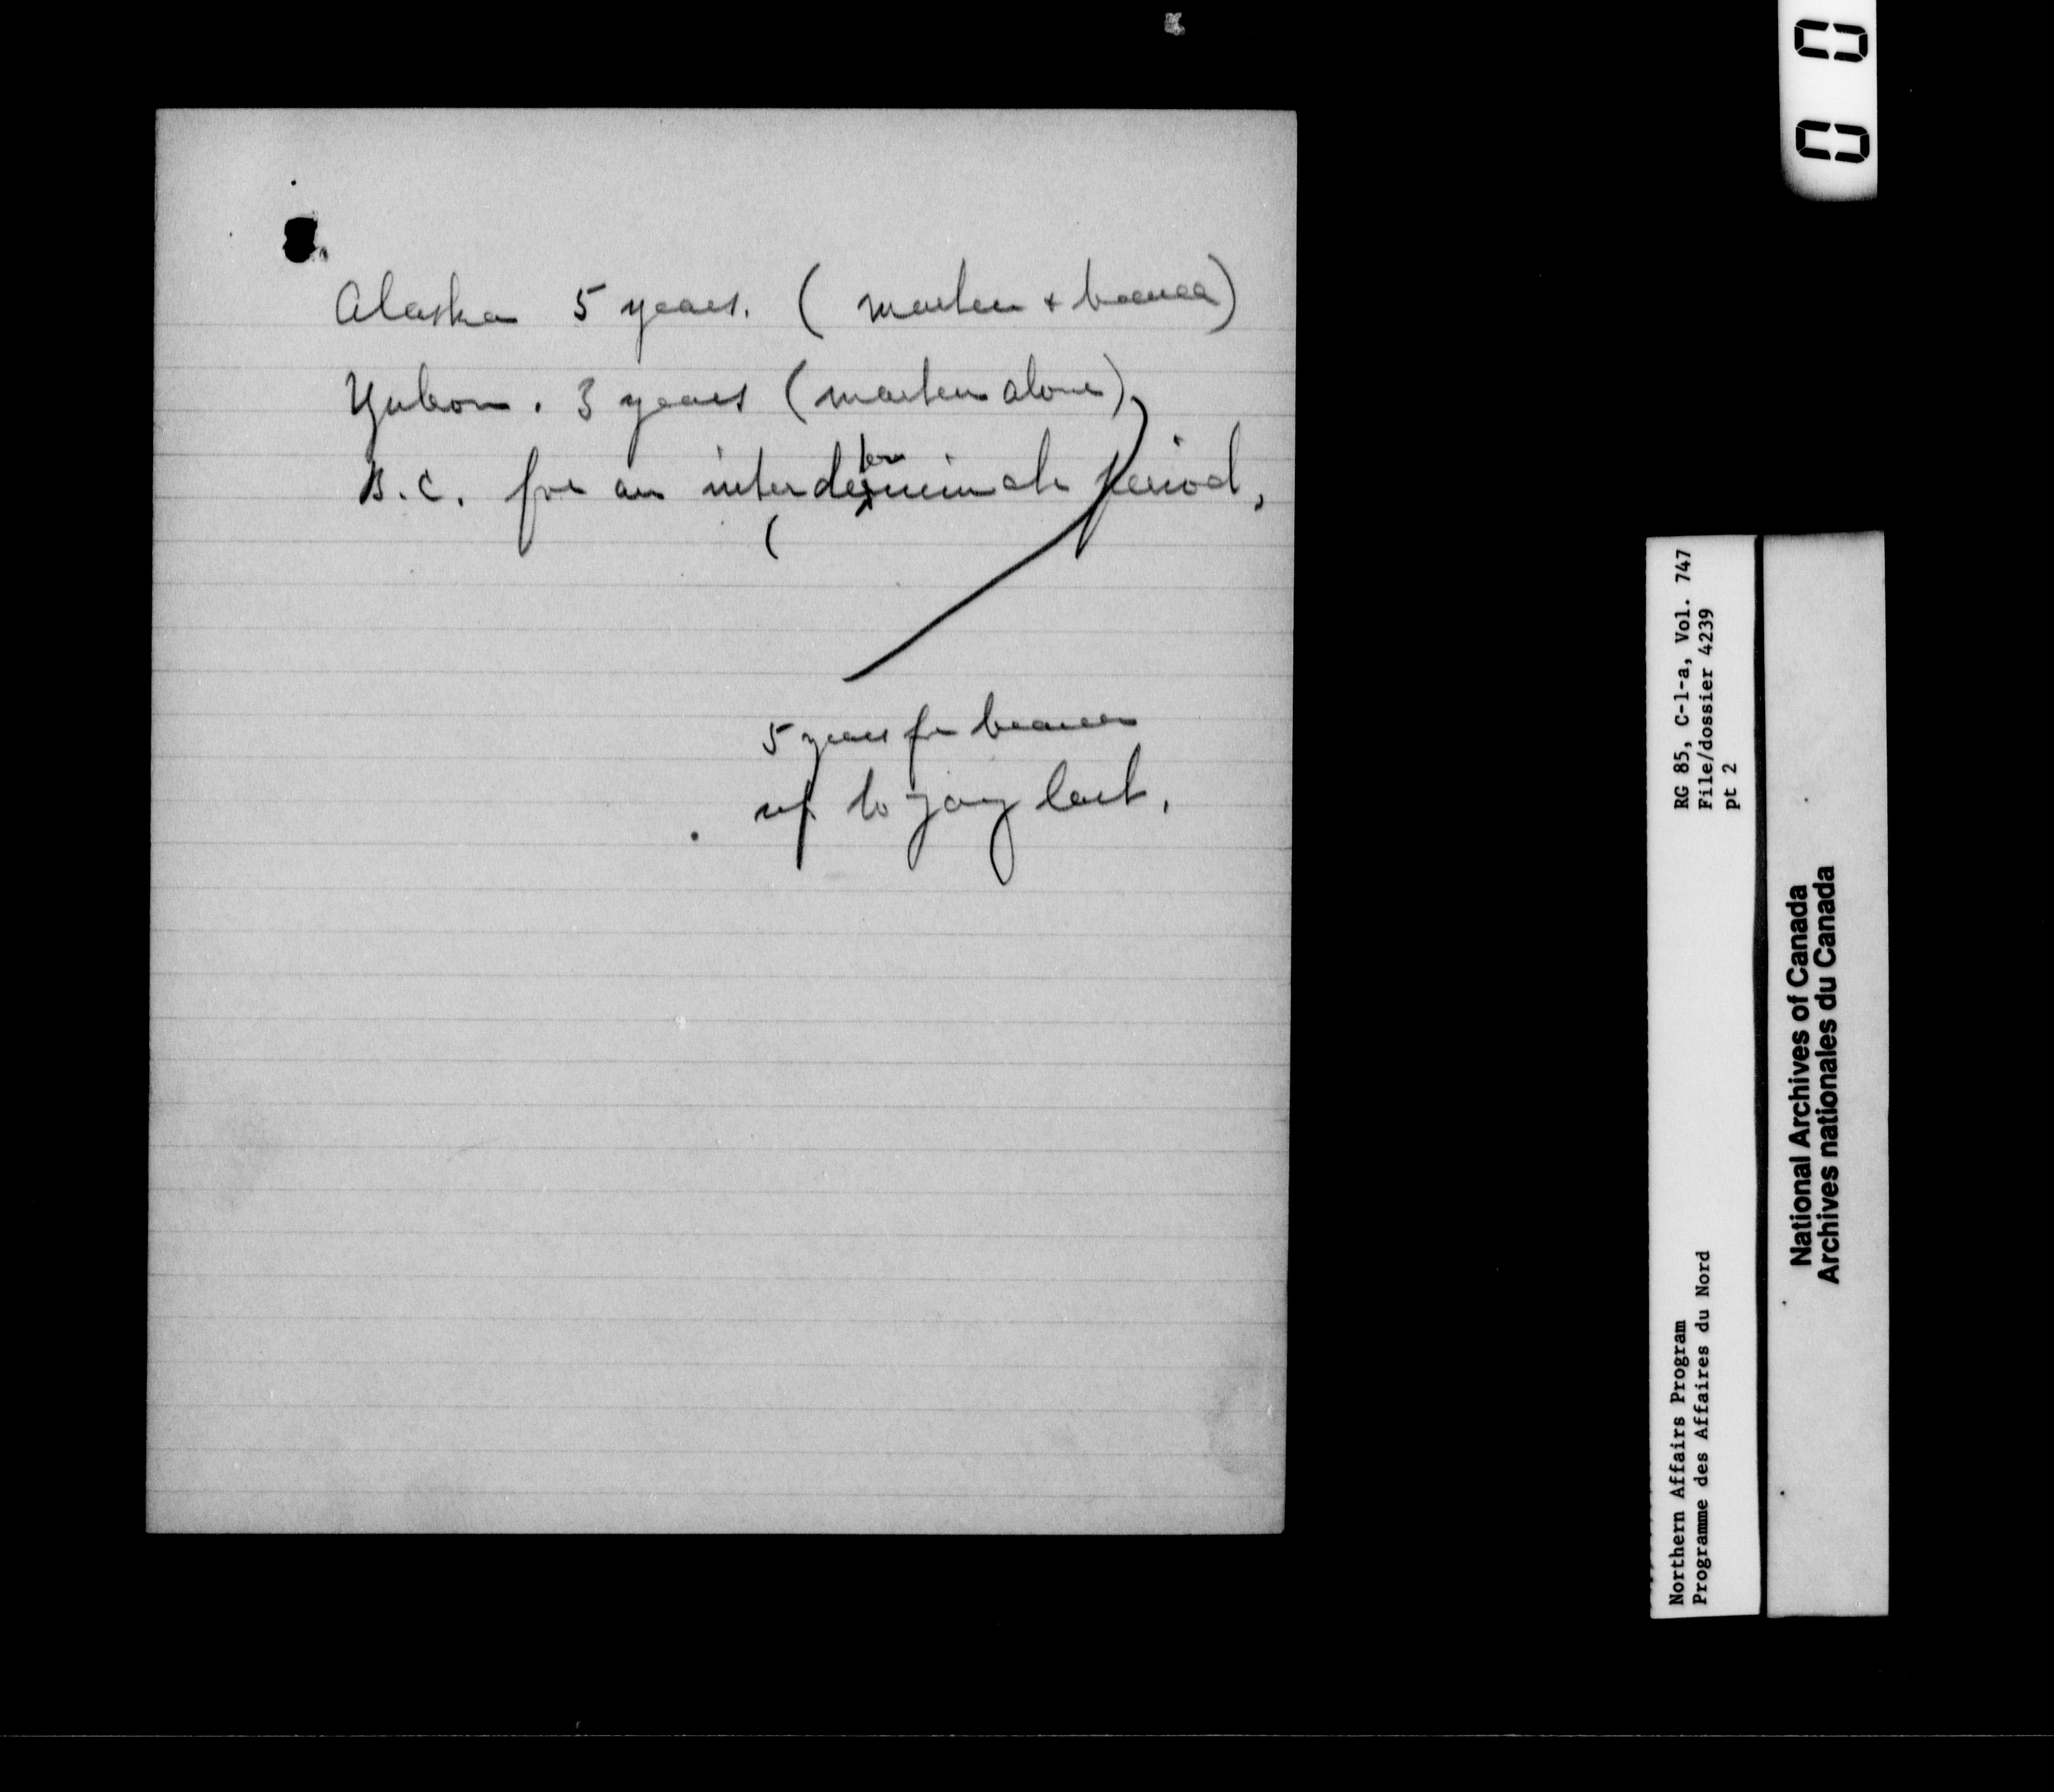 Alaska 5 years. ( marten + beaver)
Yukon. 3 years (marten alone)
B.C. for an interdeterminate period,
(
5 years for beaver
up to last.
0 0
RG 85, C-1-a, Vol. 747
File/dossier 4239
pt 2
Northern Affairs Program
Programme des Affaires du Nord
National Archives of Canada
Archives nationales du Canada